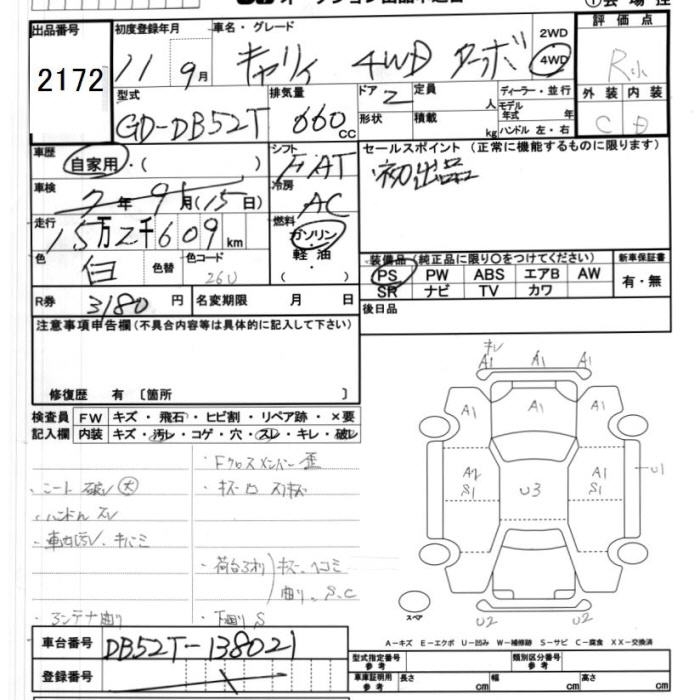 出品番号 初度登録年月 車名・グレード 2WD 4WD 評価点
2172 11 9月 キャリィ 4WD ターボ R
型式 排気量 ドア 2 定員 人 ディーラー・並行 外装 内装
GD-DB52T 660cc 形状 積載 kg モデル年式 年 C D
ハンドル 左・右
車歴 自家用・( ) シフト FAT セールスポイント (正常に機能するものに限ります)
車検 7年9月(15日) 冷房 AC 初出品
走行 1.5万2千609km 燃料 ガソリン・軽油・( )
色 白 色替 色コード 26U 装備品 (純正品に限り○をつけてください) 新車保証書
PS PW ABS エアB AW 有・無
SR ナビ TV カワ
R券 3180円 名変期限 月 日 後日品
注意事項申告欄(不具合内容等は具体的に記入して下さい)
修復歴 有 〔箇所 〕
検査員 FW キズ・飛石・ヒビ割・リペア跡・×要
記入欄 内装 キズ・汚レ・コゲ・穴・スレ・キレ・破レ
・Fクロスメンバー歪
・シート破レ 大
・ハンドルスレ
・荷台3方 キズ、ヘコミ
曲り、S、C
・アンテナ曲り ・下回りS
キレ
A1 A1 A1
A1 A1 A1
A2 S1 U3 A1 S1 U1
スペア U2 U2
A-キズ E-エクボ U-凹み W-補修跡 S-サビ C-腐食 XX-交換済
車台番号 DB52T-138021
登録番号
型式指定番号 参考 類別区分番号 参考
車庫証明用 参考 長さ cm 幅 cm 高さ cm